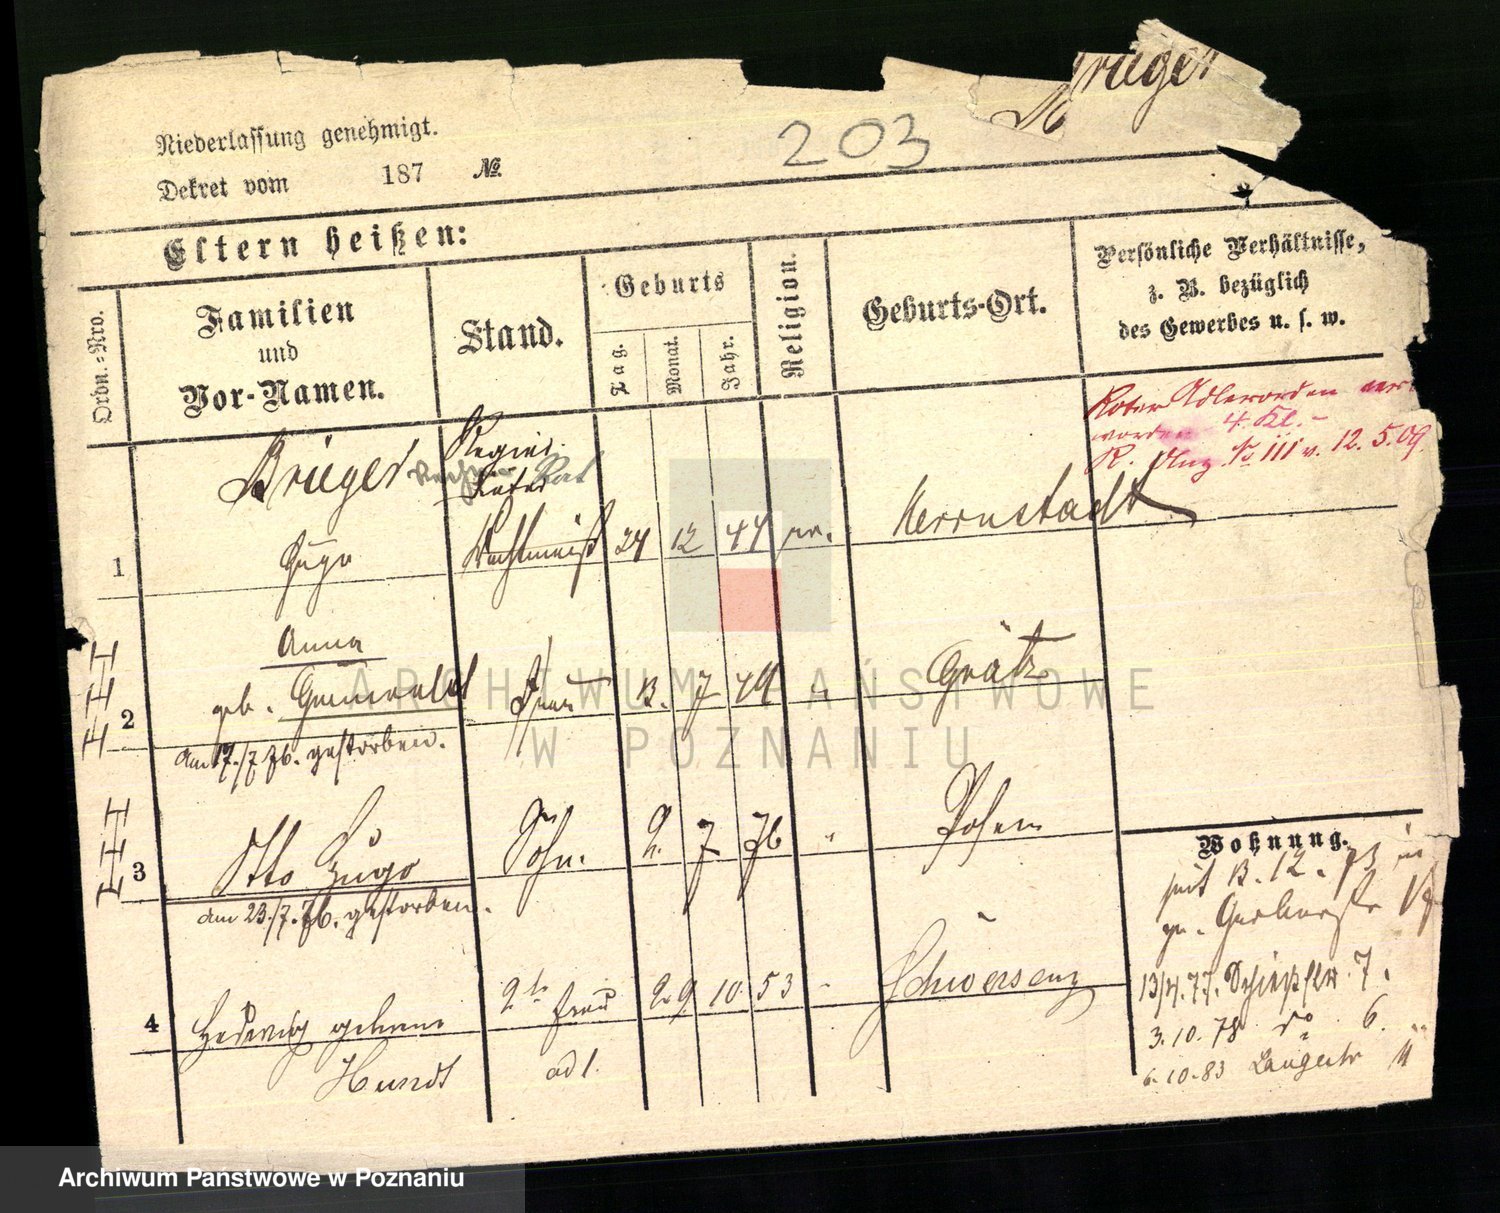 Brieger
203
Niederlassung genehmigt.
Dekret vom 187 №
Eltern heißen:
Ordn.-Nro.
Familien
und
Vor-Namen.
Stand.
Geburts
Tag.
Monat.
Jahr.
Religion.
Geburts-Ort.
Persönliche Verhältnisse,
z. B. bezüglich
des Gewerbes u. s. w.
Roter Adlerorden
4. Kl.
III v. 12. 5. 09.
Brieger
1 Hugo Wachtmeist 24 12 44 Herrnstadt
Anna
2 geb. Frau 13. 7 Grätz
am 17./7 76. gestorben.
3 Otto Hugo Sohn. 2. 7 76 " Posen
am 23./7. 76. gestorben.
4 Hedwig geborne 2te Frau 29 10. 53 " Schwersenz
Hundt ad 1.
Wohnung.
seit 13. 12. 73 in
13/4. 77. 7.
3. 10. 78 do 6.
6. 10. 83 Langestr 11
ARCHIWUM PAŃSTWOWE
W POZNANIU
Archiwum Państwowe w Poznaniu